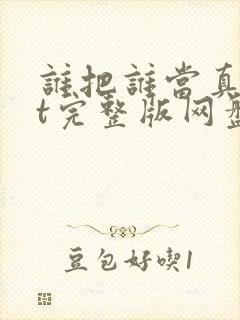 誰把誰當真
t完整版网盘
豆包好喫1